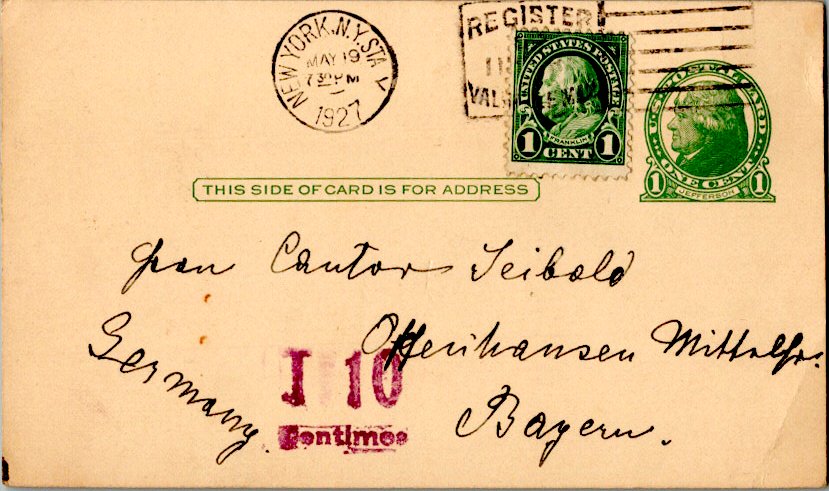 NEW YORK, N.Y. STA. V
MAY 19
7 30 PM
1927
REGISTER
VAL
UNITED STATES POSTAGE
FRANKLIN
1 CENT 1
U.S. POSTAL CARD
ONE CENT
1 JEFFERSON 1
THIS SIDE OF CARD IS FOR ADDRESS
Frau Cantor Seibold
Offenhausen Mittelfr.
Germany.
Bayern.
T 10
Centimes